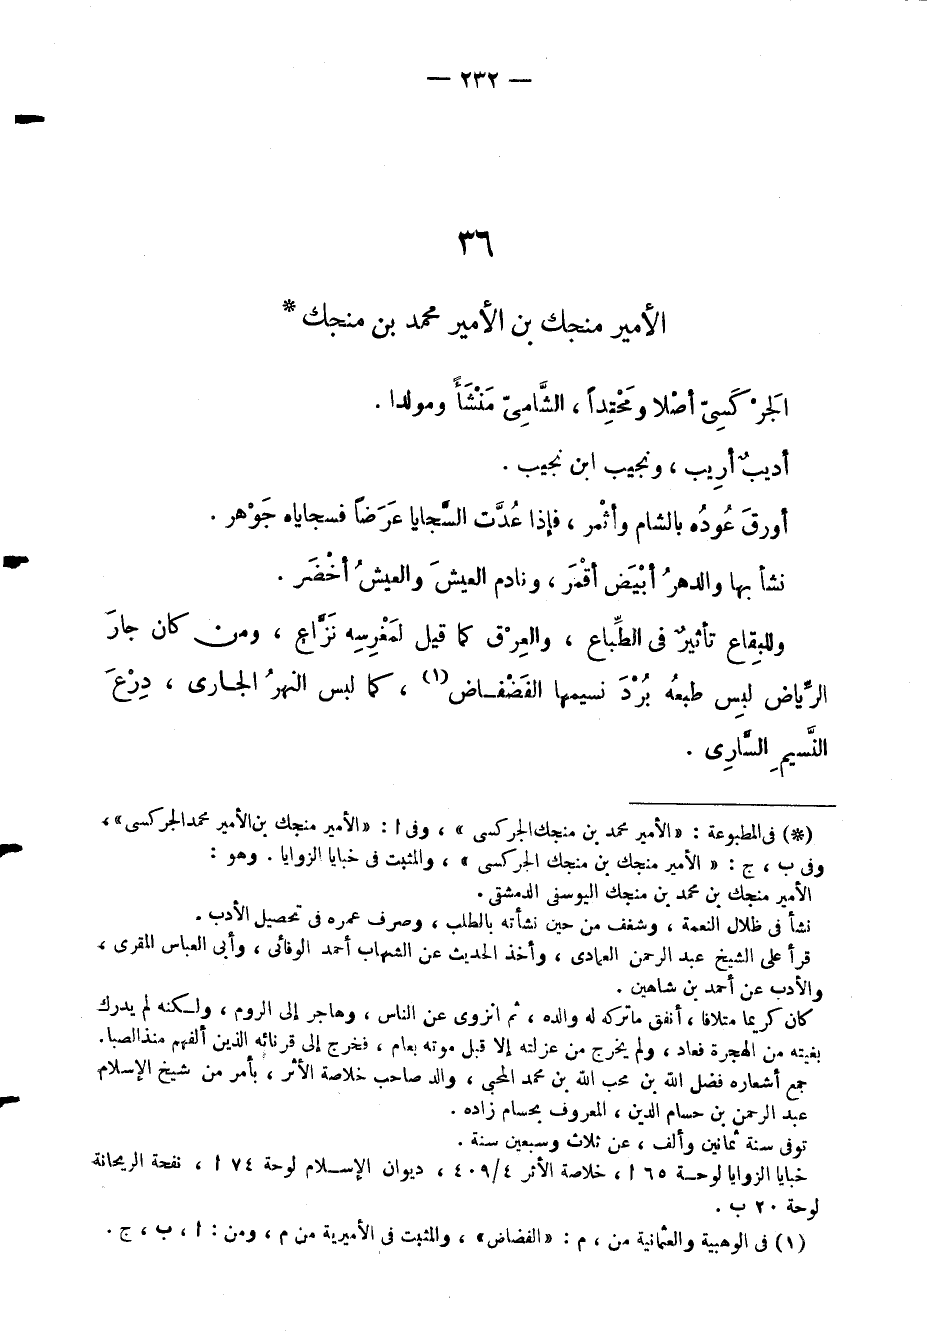 — ٢٣٢ —
٣٦
الأمير منجك بن الأمير محمد بن منجك *
الجَرْكَسِىّ أصْلا ومَحْتِداً ، الشَّامِىّ مَنْشَأً ومولدا .
أديبٌ أرِيب ، ونجيب ابن نجيب .
أورقَ عُودُه بالشام وأثْمر ، فإذا عُدَّت السَّجايا عَرَضاً فسجاياه جَوْهر .
نشأ بها والدهرُ أبْيَض أقْمَر ، ونادم العيشَ والعيشُ أخْضَر .
وللبِقاع تأثيرٌ فى الطِّباع ، والعِرْق كما قيل لمَغْرِسِه نَزَّاع ، ومن كان جارَ
الرِّياض لبِس طبعهُ بُرْدَ نسيمها الفَضْفاض(١) ، كما لبس النهرُ الجارى ، دِرْعَ
النَّسيمِ السَّارِى .
(*) فى المطبوعة : «الأمير محمد بن منجك الجركسى » ، وفى ا : «الأمير منجك بن الأمير محمد الجركسى» ،
وفى ب ، ج : « الأمير منجك بن منجك الجركسى » ، والمثبت فى خبايا الزوايا . وهو :
الأمير منجك بن محمد بن منجك اليوسفى الدمشقى .
نشأ فى ظلال النعمة ، وشغف من حين نشأته بالطلب ، وصرف عمره فى تحصيل الأدب .
قرأ على الشيخ عبد الرحمن العمادى ، وأخذ الحديث عن الشهاب أحمد الوفائى ، وأبى العباس المقرى ،
والأدب عن أحمد بن شاهين .
كان كريما متلافا ، أنفق ماتركه له والده ، ثم انزوى عن الناس ، وهاجر إلى الروم ، ولكنه لم يدرك
بغيته من الهجرة فعاد ، ولم يخرج من عزلته إلا قبل موته بعام ، فخرج إلى قرنائه الذين ألفهم منذ الصبا .
جمع أشعاره فضل الله بن محب الله بن محمد المحبى ، والد صاحب خلاصة الأثر ، بأمر من شيخ الإسلام
عبد الرحمن بن حسام الدين ، المعروف بحسام زاده .
توفى سنة ثمانين وألف ، عن ثلاث وسبعين سنة .
خبايا الزوايا لوحة ٦٥ ا ، خلاصة الأثر ٤/ ٤٠٩ ، ديوان الإسلام لوحة ٧٤ ا ، نفحة الريحانة
لوحة ٢٠ ب .
(١) فى الوهبية والعثمانية من ، م : «الفضاض» ، والمثبت فى الأميرية من م ، ومن : ا ، ب ، ج .